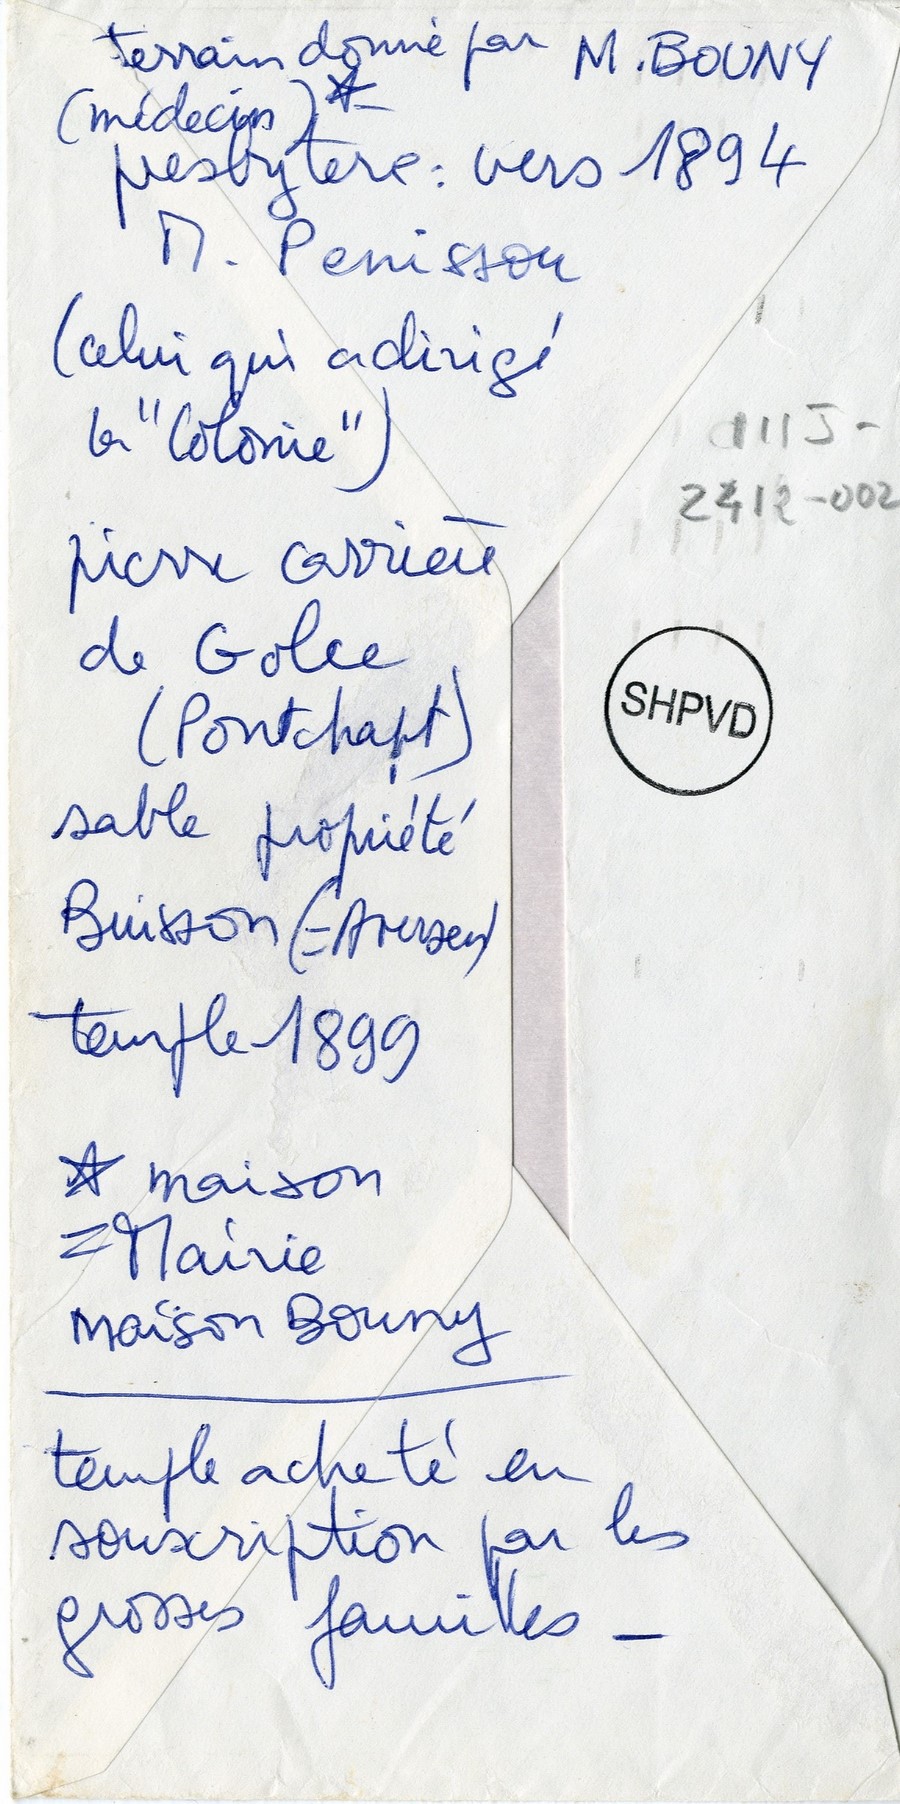 terrain donné par M. BOUNY
(médecin) *
presbytère : vers 1894
M. Penisson
(celui qui a dirigé
la "Colonie")
pierre carrière
de Golce
(Pontchapt)
sable propriété
Buisson (=Aversen)
temple 1899
* maison
= Mairie
maison Bouny
temple acheté en
souscription par les
grosses familles –
111J-
2412-002
SHPVD